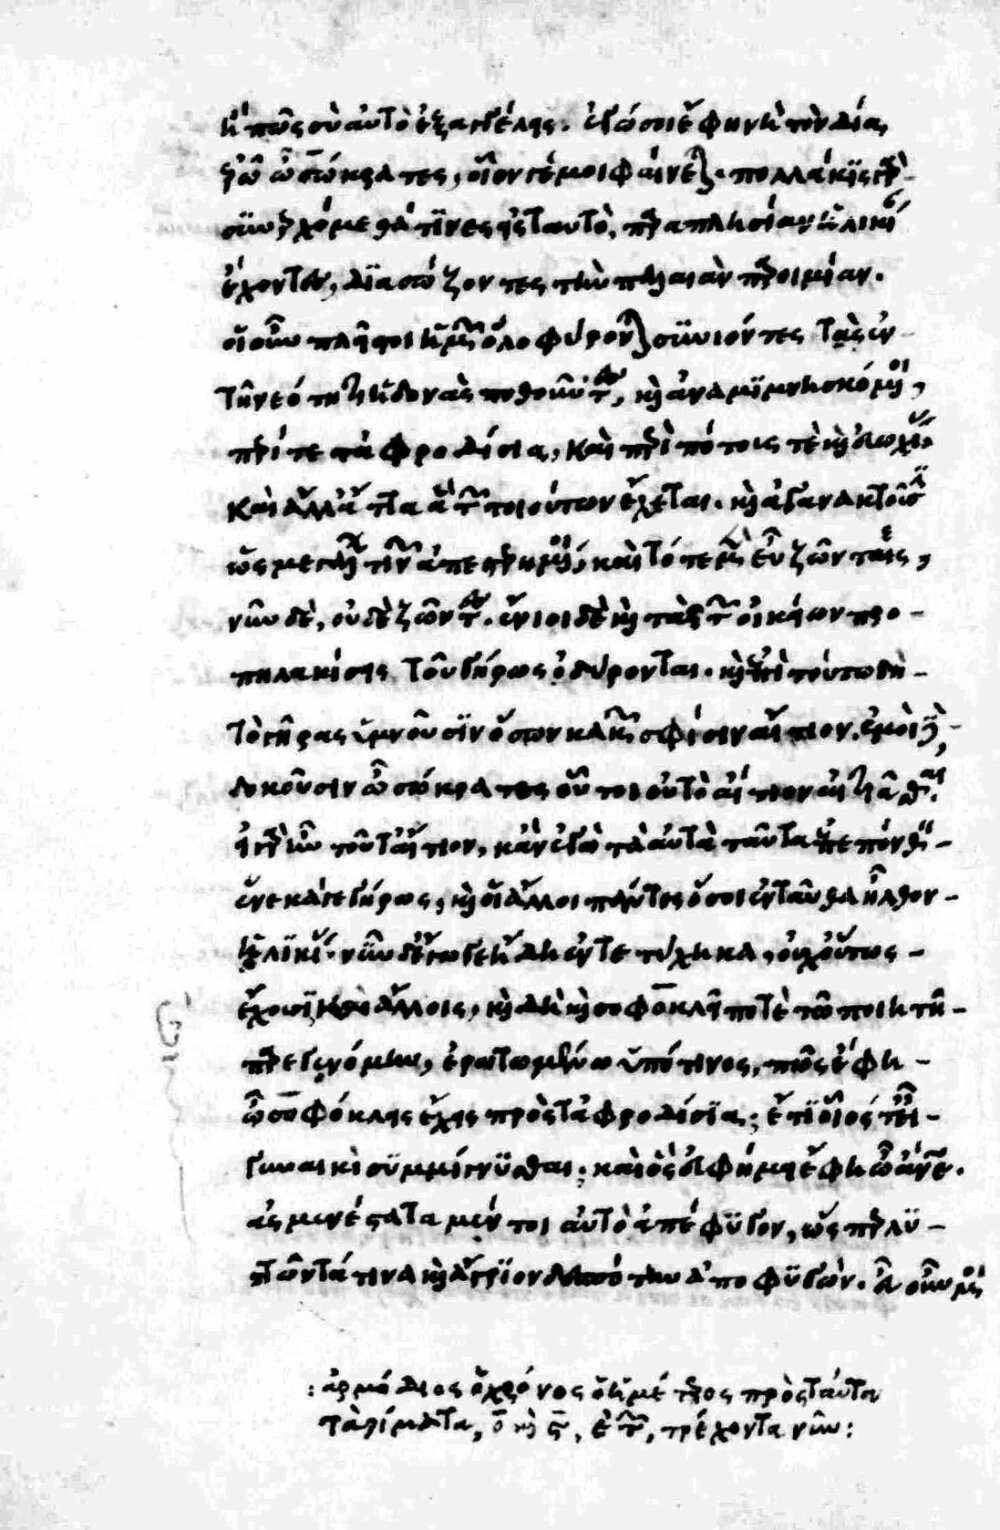 ἢ πῶς σὺ αὐτὸ ἐξαγγέλεις. ἐγώ σοι ἔφη νὴ τὸν δία,
ἐρῶ ὦ σώκρατες, οἷον γέ μοι φαίνεται. πολλάκις γὰρ
συνερχόμεθά τινες εἰς ταυτὸ, παραπλησίαν ἡλικίαν
ἔχοντες, διασώζοντες τὴν παλαιὰν παροιμίαν.
οἱ οὖν πλεῖστοι ἡμῶν ὀλοφύρονται συνιόντες τὰς ἐν
τῇ νεότητι ἡδονὰς ποθοῦντες, καὶ ἀναμιμνησκόμενοι,
περί τε τἀφροδίσια, καὶ περὶ πότους τὲ καὶ εὐωχίας
καὶ ἄλλ' ἄττα ἃ τῶν τοιούτων ἔχεται. καὶ ἀγανακτοῦσιν
ὡς μεγάλων τινῶν ἀπεστερημένοι, καὶ τότε μὲν εὖ ζῶντες,
νῦν δὲ, οὐδὲ ζῶντες. ἔνιοι δὲ καὶ τὰς τῶν οἰκείων προ-
πηλακίσεις τοῦ γήρως ὀδύρονται. καὶ ἐπὶ τούτω δὴ
τὸ γῆρας ὑμνοῦσιν ὅσων κακῶν σφίσιν αἴτιον. ἐμοὶ δὲ
δοκοῦσιν ὦ σώκρατες οὗτοι οὐ τὸ αἴτιον αἰτιᾶσθαι.
εἰ γὰρ ἦν τοῦτ' αἴτιον, κἂν ἐγὼ τὰ αὐτὰ ταῦτα ἐπεπόνθειν
ἕνεκά γε γήρως, καὶ οἱ ἄλλοι πάντες ὅσοι ἐνταῦθα ἦλθον
ἡλικίας. νῦν δ' ἔγωγε ἤδη ἐντετύχηκα, οὐχ οὕτως
ἔχουσι καὶ ἄλλοις, καὶ δὴ καὶ σοφοκλεῖ ποτὲ τῶ ποιητῆ
παρεγενόμην, ἐρωτωμένω ὑπό τινος, πῶς ἔφη
ὦ σοφόκλεις ἔχεις πρὸς τἀφροδίσια; ἔτι οἷός τε εἶ
γυναικὶ συμμίγνυσθαι; καὶ ὃς εὐφήμει ἔφη ὦ ἄνθρωπε.
ἀσμενέστατα μέν τοι αὐτὸ ἀπέφυγον, ὥσπερ λυτ-
τῶντά τινα καὶ ἄγριον δεσπότην ἀποφυγών. εὖ οὖν μοι
: ἁρμόδιος ὁ χρόνος ὁ ἡμέτερος πρὸς ταῦτα
τὰ ῥήματα, τρέχοντα νῦν :